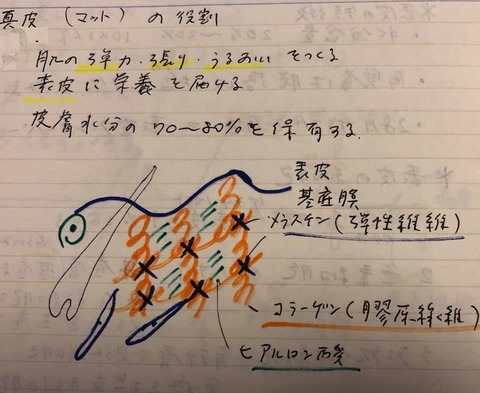 真皮(マット)の役割
・肌の弾力・張り・うるおいをつくる
表皮に栄養を届ける
皮膚水分の70〜80%を保有する。
表皮
基底膜
エラスチン(弾性繊維)
コラーゲン(膠原繊維)
ヒアルロン酸